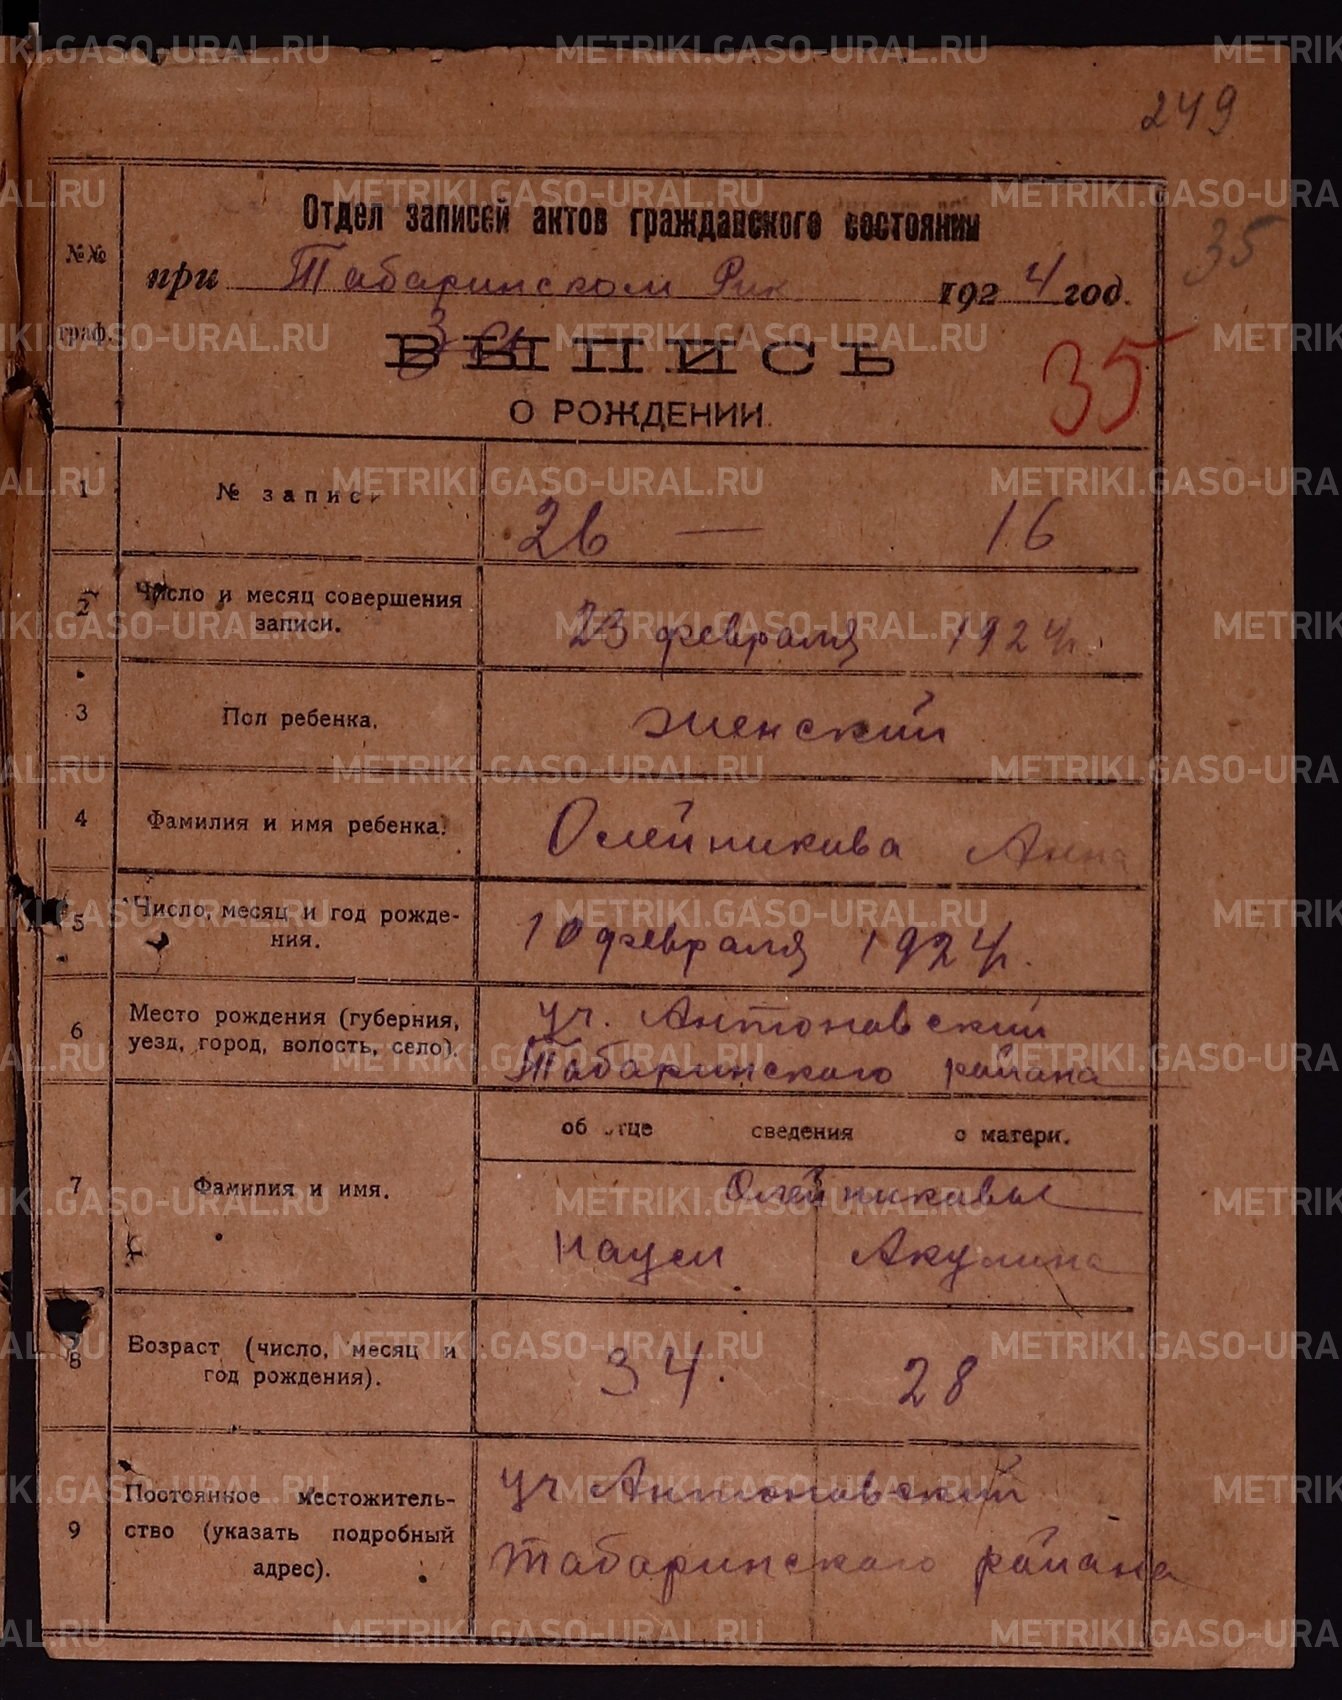 249
Отдел записей актов гражданского состояния
№№ граф.
при Табаринском Рик 1924 год.
35
ВЫПИСЬ
35
О РОЖДЕНИИ.
1 № записи 26 — 16
2 Число и месяц совершения
записи.
23 февраля 1924 г.
3 Пол ребенка. Женский
4 Фамилия и имя ребенка. Олейникова Анна
5 Число, месяц и год рожде-
ния.
10 февраля 1924 г.
6 Место рождения (губерния,
уезд, город, волость, село).
уч. Антоновский
Табаринского района
об отце сведения о матери.
7 Фамилия и имя.
Олейниковы
Наум Акулина
8 Возраст (число, месяц и
год рождения).
34. 28
9 Постоянное местожитель-
ство (указать подробный
адрес).
уч Антоновский
Табаринского района
METRIKI.GASO-URAL.RU